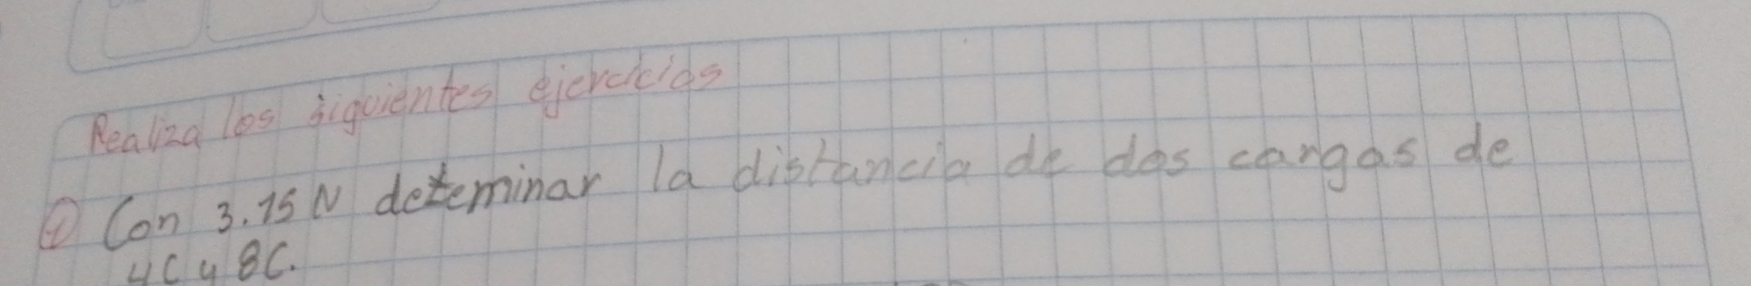 Realiza los siguientes ejercicios
① Con 3.15N deteminar la distancia de dos cargas de
4C y 8C.